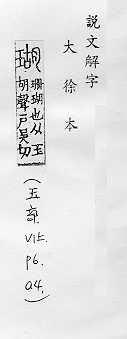 說文解字
大徐本
瑚
珊瑚也从玉
胡聲戶吳切
(玉部. V1上. P6. a4.)